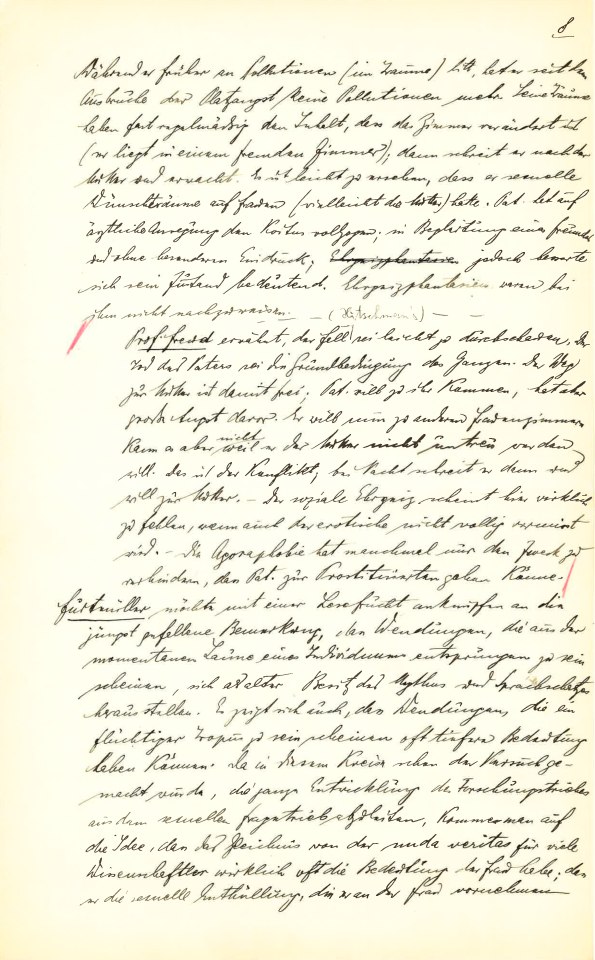 8
Während er früher an Pollutionen (im Traume) litt, hat er seit dem
Ausbruche der Platzangst keine Pollutionen mehr. Seine Träume
haben fast regelmässig den Inhalt, dass das Zimmer verändert ist
(er liegt in einem fremden Zimmer); dann schreit er nach der
Mutter und erwacht. Es ist leicht zu ersehen, dass er sexuelle
Wunschträume auf Frauen (vielleicht die Mutter) hatte. Pat. hat auf
ärztliche Anregung den Koitus vollzogen, in Begleitung eines Freundes
und ohne besonderen Eindruck; Ehrgeizphantasien jedoch besserte
sich sein Zustand bedeutend. Ehrgeizphantasien waren bei
ihm nicht nachzuweisen. — (Hitschmann) — —
Prof. Freud erwähnt, der Fall sei leicht zu durchschauen. Der
Tod des Vaters sei die Grundbedingung des Ganzen. Der Weg
zur Mutter ist damit frei; Pat. will zu ihr kommen, hat aber
große Angst davor. Er will nun zu anderen Frauenzimmern
kann es aber nicht weil er der Mutter nicht untreu werden
will. Das ist der Konflikt; bei Nacht schreit er dann und
will zur Mutter. — Der soziale Ehrgeiz scheint hier wirklich
zu fehlen, wenn auch der erotische nicht völlig vermisst
wird. — Die Agoraphobie hat manchmal nur den Zweck zu
verhindern, dass Pat. zur Prostituierten gehen könne.
Furtmüller möchte mit einer Lesefrucht anknüpfen an die
jüngst gefallene Bemerkung, dass Wendungen, die aus der
momentanen Laune eines Individuums entsprungen zu sein
scheinen, sich als alter Besitz des Mythus und Sprachschatzes
herausstellen. Es zeigt sich auch, dass Wendungen, die ein
flüchtiger Tropus zu sein scheinen oft tiefere Bedeutung
haben können. Da in diesem Kreise schon der Versuch ge-
macht wurde, die ganze Entwicklung des Forschungstriebes
aus dem sexuellen Fragetrieb abzuleiten, komme man auf
die Idee, dass das Gleichnis von der nuda veritas für viele
Wissenschaftler wirklich oft die Bedeutung der Frau habe; dass
er die sexuelle Enthüllung, die er an der Frau vornehmen